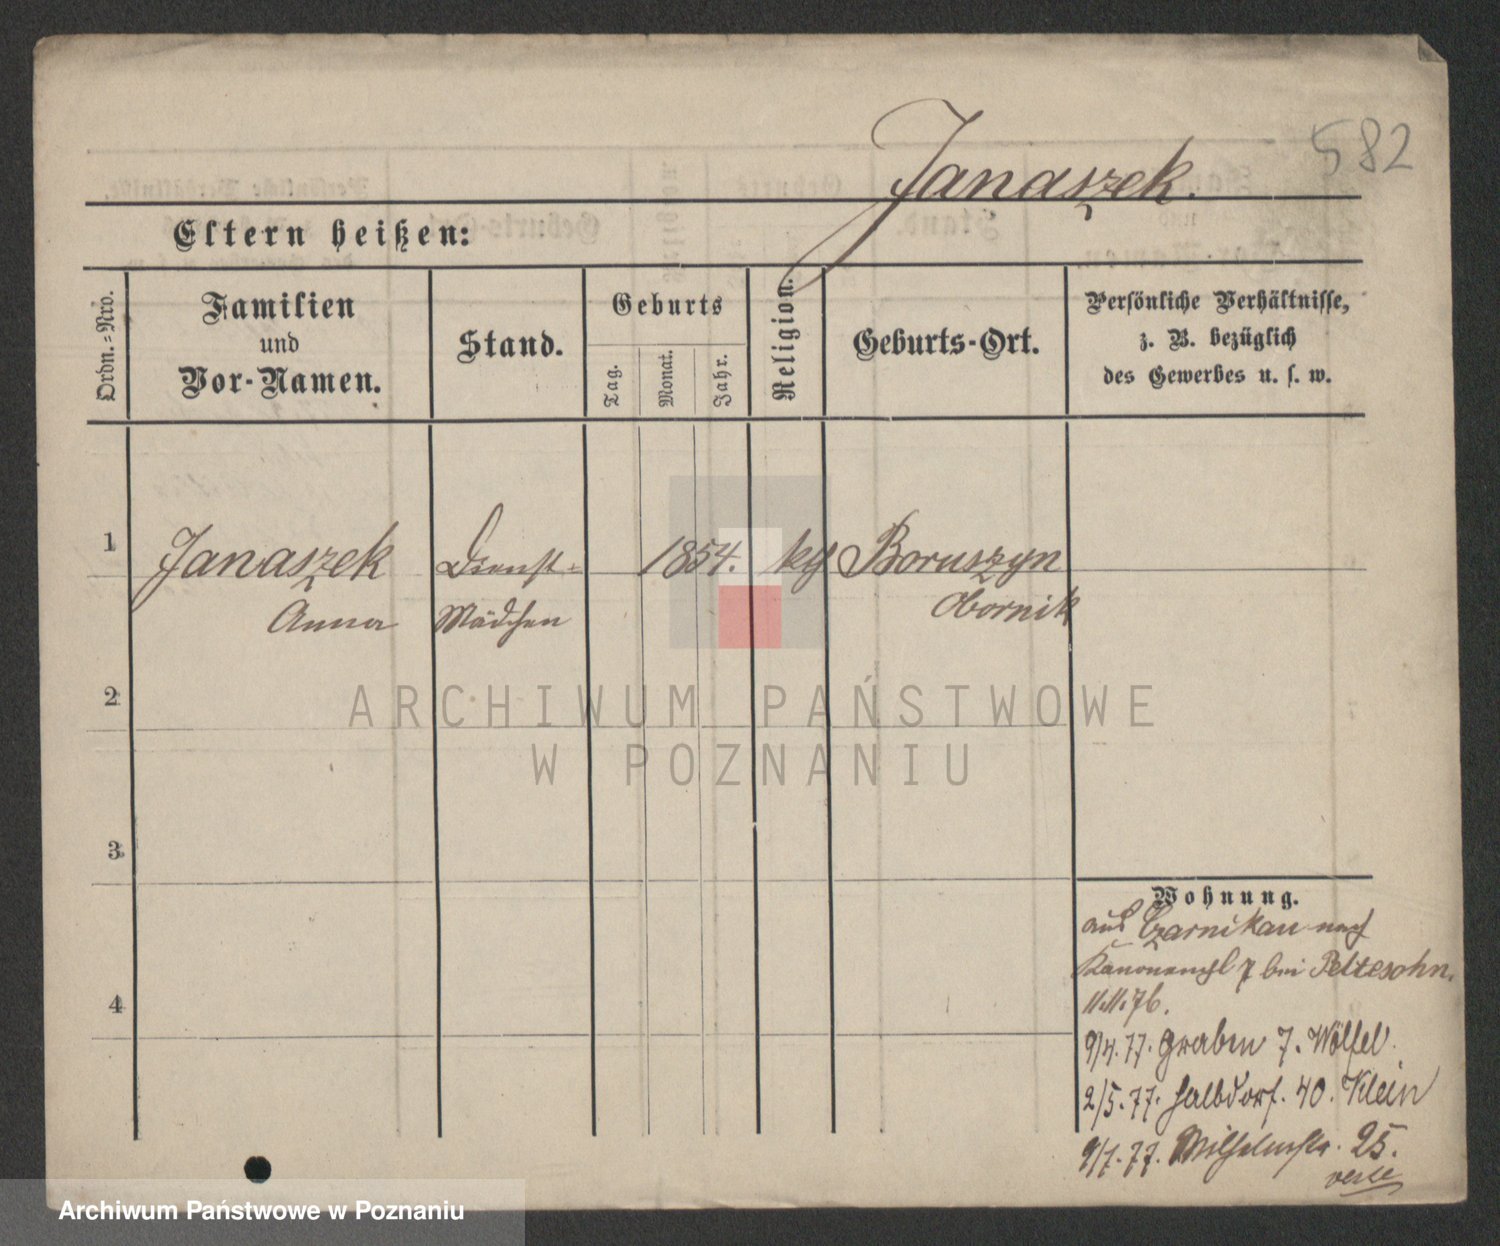 582
Janaszek.
Eltern heißen:
Ordn.-Nro.
Familien
und
Vor-Namen.
Stand.
Geburts
Tag.
Monat.
Jahr.
Religion.
Geburts-Ort.
Persönliche Verhältnisse,
z. B. bezüglich
des Gewerbes u. s. w.
1
Janaszek
Anna
Dienst-
Mädchen
1854.
Boruszyn
Obornik
2
3
4
ARCHIWUM PAŃSTWOWE
W POZNANIU
Wohnung.
aus Czarnikau nach
7 bei Peltesohn.
11.11.76.
9/4.77. Graben 7. Wölfel.
2/5.77. Halbdorf. 40. Klein
9/7.77. Wilhelmstr. 25.
Archiwum Państwowe w Poznaniu